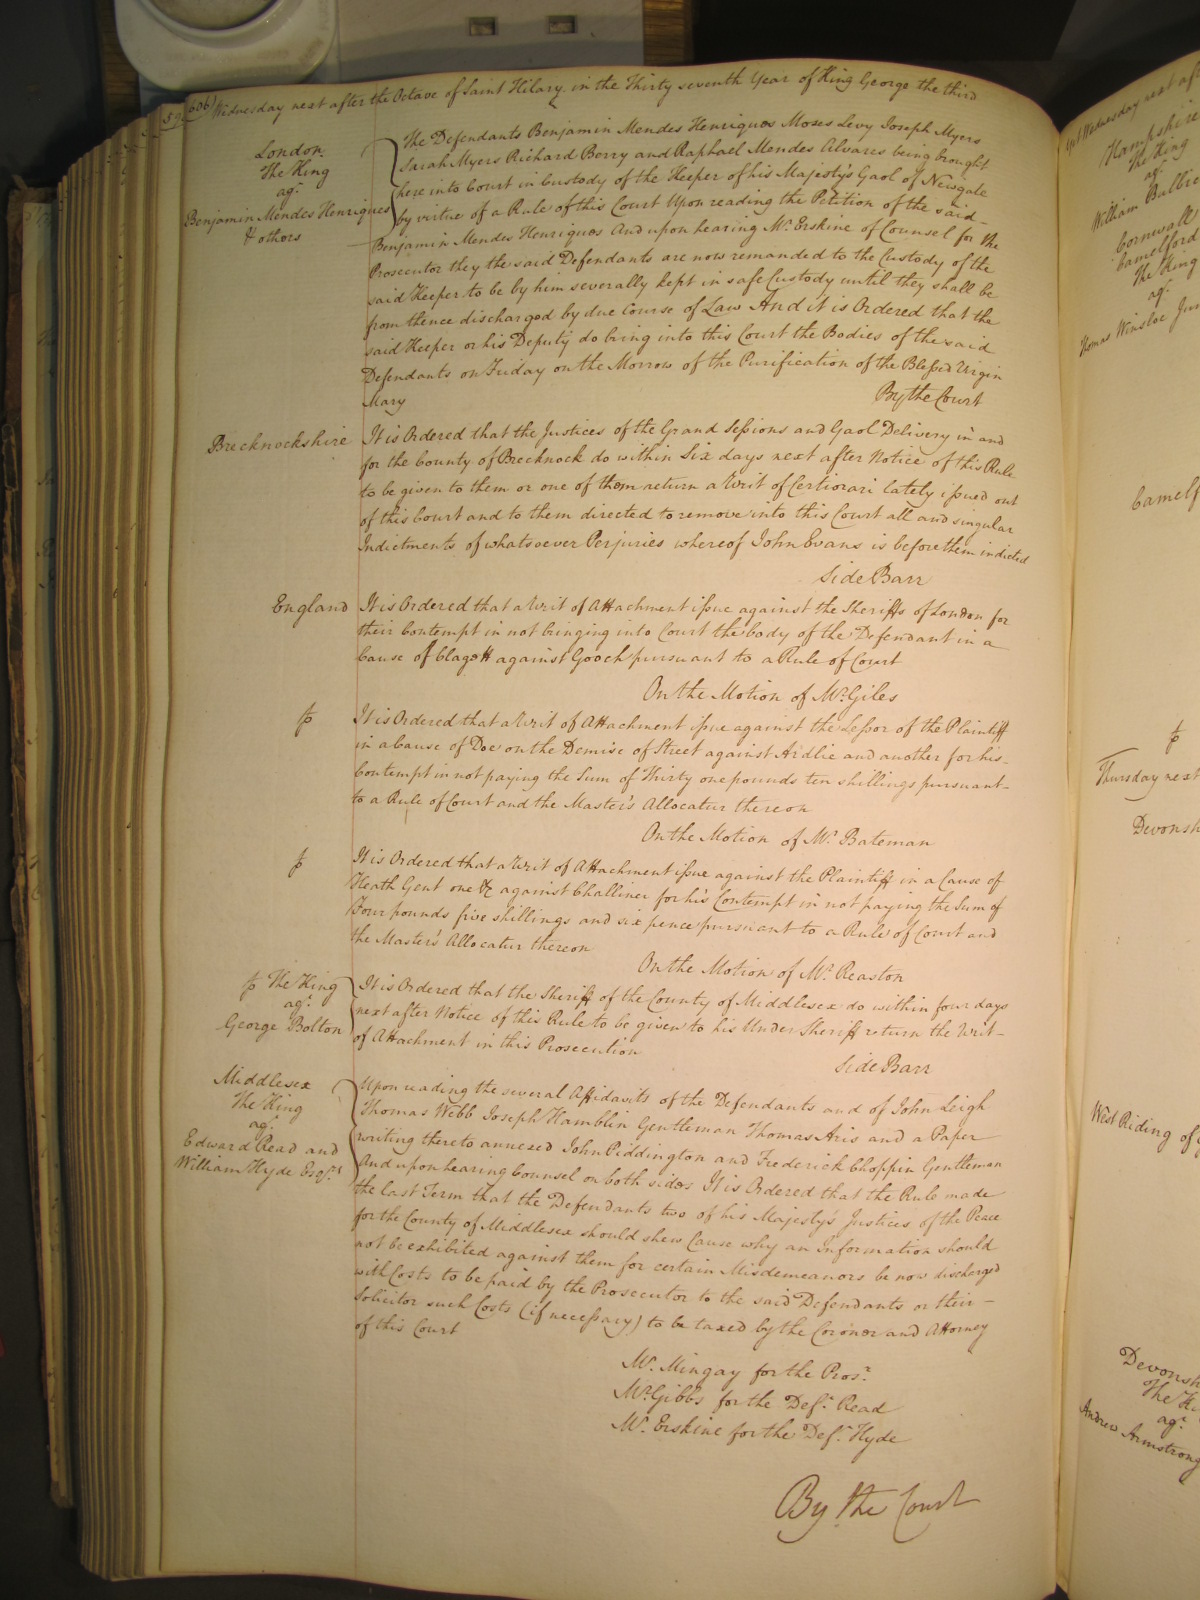 606) Wednesday next after the Octave of Saint Hilary in the Thirty seventh Year of King George the third
London
The King
agt.
Benjamin Mendes Henriques
& others
The Defendants Benjamin Mendes Henriques Moses Levy Joseph Myers
Sarah Myers Richard Berry and Raphael Mendes Alvares being brought
here into Court in Custody of the Keeper of his Majesty's Gaol of Newgate
by virtue of a Rule of this Court Upon reading the Petition of the said
Benjamin Mendes Henriques And upon hearing Mr. Erskine of Counsel for the
Prosecutor they the said Defendants are now remanded to the Custody of the
said Keeper to be by him severally kept in safe Custody until they shall be
from thence discharged by due Course of Law And it is Ordered that the
said Keeper or his Deputy do bring into this Court the Bodies of the said
Defendants on Friday on the Morrow of the Purification of the Blessed Virgin
Mary
By the Court
Brecknockshire
It is Ordered that the Justices of the Grand Sessions and Gaol Delivery in and
for the County of Brecknock do within Six days next after Notice of this Rule
to be given to them or one of them return a Writ of Certiorari lately issued out
of this Court and to them directed to remove into this Court all and singular
Indictments of whatsoever Perjuries whereof John Evans is before them indicted
Side Barr
England
It is Ordered that a Writ of Attachment issue against the Sheriffs of London for
their Contempt in not bringing into Court the body of the Defendant in a
Cause of Clagett against Gooch pursuant to a Rule of Court
On the Motion of Mr. Giles
It is Ordered that a Writ of Attachment issue against the Lessor of the Plaintiff
in a Cause of Doe on the Demise of Street against Ardlie and another for his
Contempt in not paying the Sum of Thirty one pounds ten shillings pursuant
to a Rule of Court and the Master's Allocatur thereon
On the Motion of Mr. Bateman
It is Ordered that a Writ of Attachment issue against the Plaintiff in a Cause of
Heath Gent one &c against Challiner for his Contempt in not paying the Sum of
Four pounds five shillings and six pence pursuant to a Rule of Court and
the Master's Allocatur thereon
On the Motion of Mr. Reaston
The King
agt.
George Bolton
It is Ordered that the Sheriff of the County of Middlesex do within four days
next after Notice of this Rule to be given to his Under Sheriff return the Writ
of Attachment in this Prosecution
Side Barr
Middlesex
The King
agt.
Edward Read and
William Hyde Esqrs.
Upon reading the several Affidavits of the Defendants and of John Leigh
Thomas Webb Joseph Hamblin Gentleman Thomas Aris and a Paper
writing thereto annexed John Piddington and Frederick Choppin Gentleman
And upon hearing Counsel on both sides It is Ordered that the Rule made
the last Term that the Defendants two of his Majesty's Justices of the Peace
for the County of Middlesex should shew Cause why an Information should
not be exhibited against them for certain Misdemeanors be now discharged
with Costs to be paid by the Prosecutor to the said Defendants or their
Solicitor such Costs (if necessary) to be taxed by the Coroner and Attorney
of this Court
Mr. Mingay for the Prosr.
Mr. Gibbs for the Deft. Read
Mr. Erskine for the Deft. Hyde
By the Court
Yet Wednesday next af
Hampshire
The King
agt.
William Bullie
Cornwall
Camelford
The King
agt.
Thomas Winsloe Jun
Camelf
Thursday next
Devonsh
West Riding of
Devonsh
The Ki
agt.
Andrew Armstrong